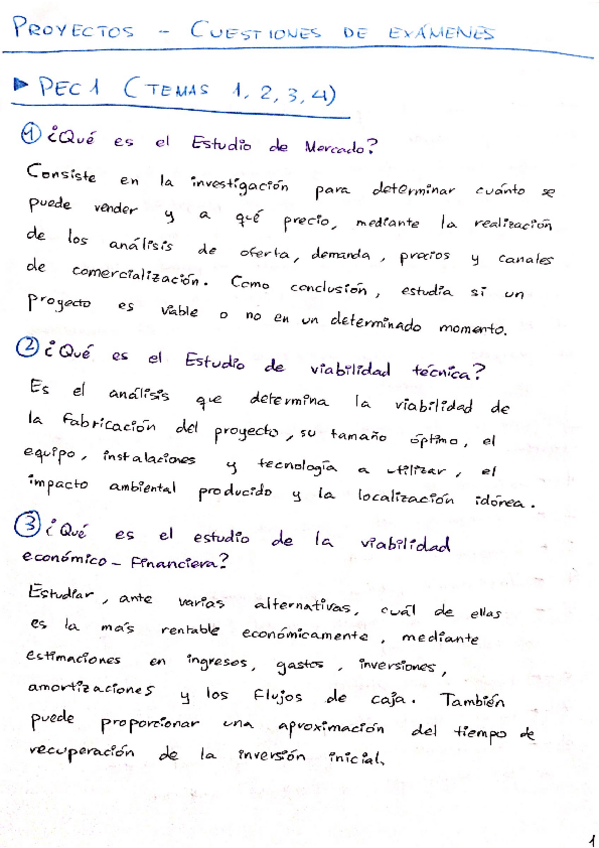 PROYECTOS - CUESTIONES DE EXÁMENES
▶ PEC 1 (TEMAS 1, 2, 3, 4)
① ¿Qué es el Estudio de Mercado?
Consiste en la investigación para determinar cuánto se
puede vender y a qué precio, mediante la realización
de los análisis de oferta, demanda, precios y canales
de comercialización. Como conclusión, estudia si un
proyecto es viable o no en un determinado momento.
② ¿Qué es el Estudio de viabilidad técnica?
Es el análisis que determina la viabilidad de
la fabricación del proyecto, su tamaño óptimo, el
equipo, instalaciones y tecnología a utilizar, el
impacto ambiental producido y la localización idónea.
③ ¿Qué es el estudio de la viabilidad
económico - Financiera?
Estudiar, ante varias alternativas, cuál de ellas
es la más rentable económicamente, mediante
estimaciones en ingresos, gastos, inversiones,
amortizaciones y los flujos de caja. También
puede proporcionar una aproximación del tiempo de
recuperación de la inversión inicial.
1